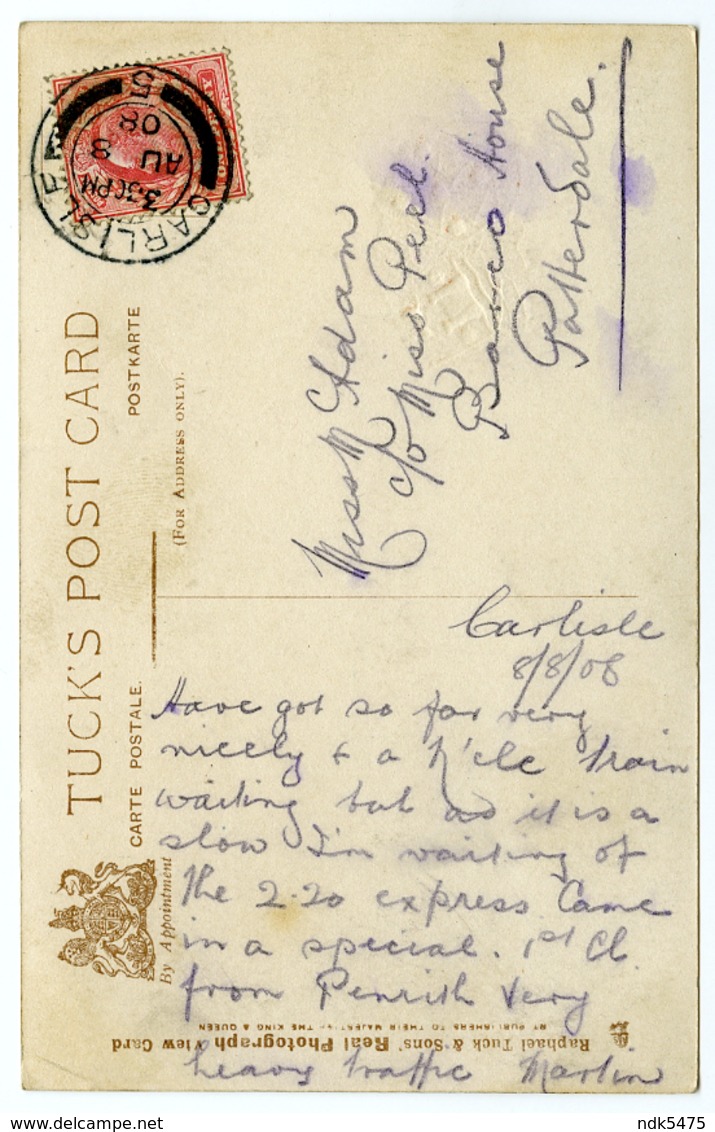 CARLISLE
3.30PM
AU 8
08
S
TUCK'S POST CARD
CARTE POSTALE.
POSTKARTE
(FOR ADDRESS ONLY).
By Appointment
Miss M Adam
c/o Miss Peel.
Barco House
Patterdale.
Carlisle
8/8/08
Have got so far very
nicely & a N'cle train
waiting but as it is a
slow I'm waiting of
the 2.20 express Came
in a special. 1st Cl.
from Penrith Very
heavy traffic Martin
Raphael Tuck & Sons' Real Photograph View Card
BY PUBLISHERS TO THEIR MAJESTIES THE KING & QUEEN
ndk5475